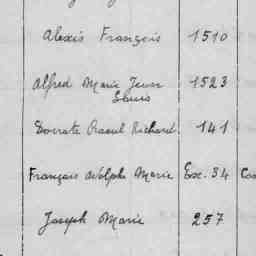 Alexis François 1510
Alfred Marie Jean 1523
Louis
Raoul Richard 141
François Adolphe Marie Exc. 34
Joseph Marie 257